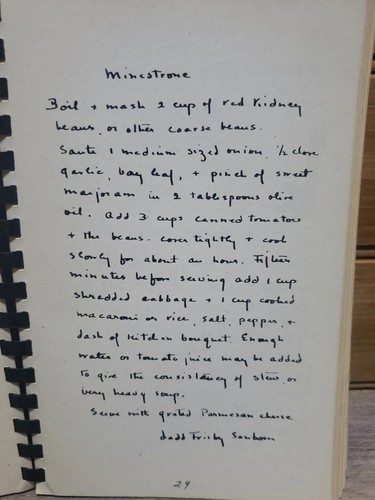 Minestrone
Boil + mash 2 cup of red Kidney
beans, or other coarse beans.
Saute 1 medium sized onion, ½ clove
garlic, bay leaf, + pinch of sweet
marjoram in 2 tablespoons olive
oil. add 3 cups canned tomatoes
+ the beans. cover tightly + cook
slowly for about an hour. Fifteen
minutes before serving add 1 cup
shredded cabbage + 1 cup cooked
macaroni or rice, salt, pepper, +
dash of kitchen bouquet. Enough
water or tomato juice may be added
to give the consistancy of stew, or
very heavy soup.
Serve with grated Parmesan cheese
Frisby Sanborn
29